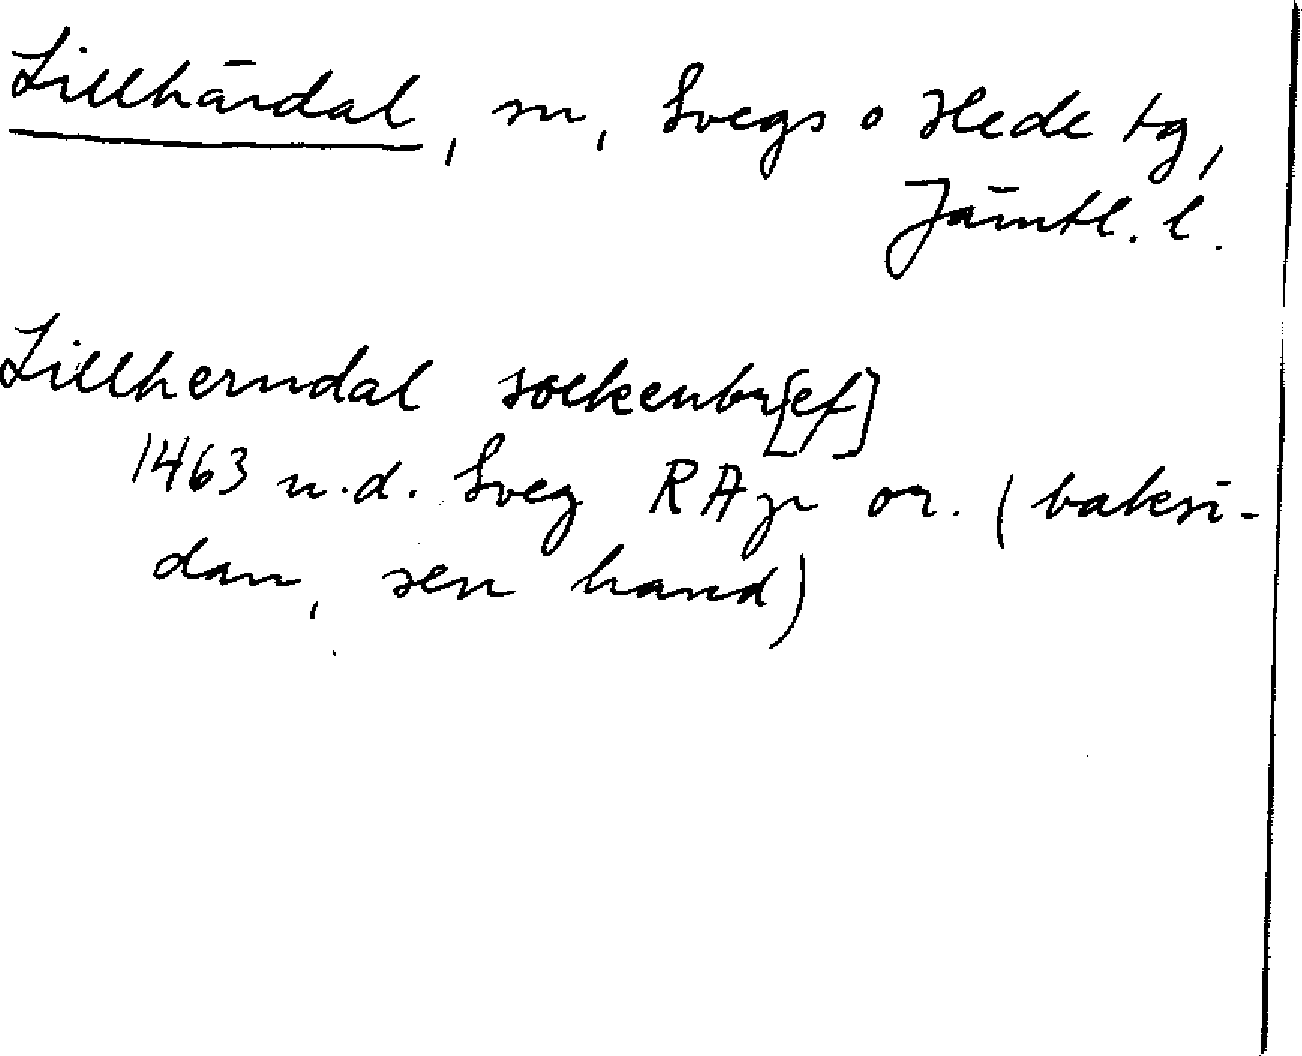 Lillhärdal, sn, Svegs o Hede tg,
Jämtl. l.
Lillherndal sockenbr[ef]
1463 u.d. Sveg RAp or. (baksi-
dan, sen hand)